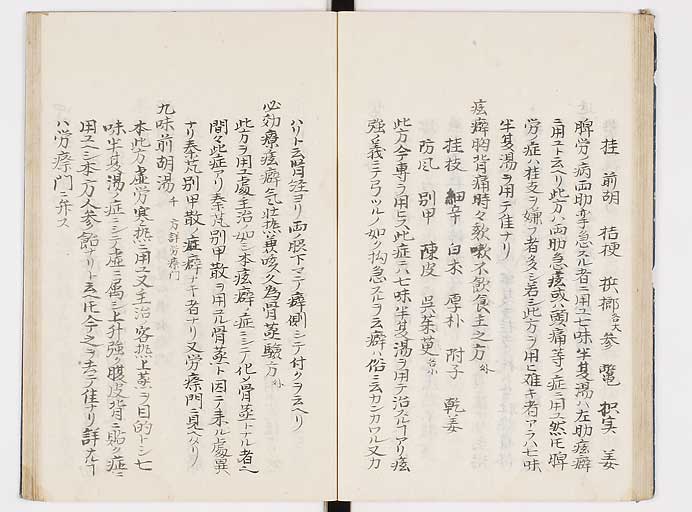 桂 前胡 桔梗 梹榔各大 参 鼈 枳実 姜
脾労ノ病両肋拏急スル者ニ用ユ七味半夏湯ハ左肋痃癖
ニ用ユト云ヘリ此方ハ両肋急痃或ハ頭痛等ノ症ニ用ユ然ㇳモ脾
労ノ症ハ桂支ヲ嫌フ者多シ若シ此方ヲ用ヒ难キ者アラハ七味
半夏湯ヲ用テ佳ナリ
痃癖胸背痛時々欬嗽不飲食主之方 外
桂枝 細辛 白朮 厚朴 附子 乾姜
防風 別甲 陳皮 呉茱萸
此方今専ラ用ヒス此症ニハ七味半夏湯ヲ用テ治スルコアリ痃
強ノ義ニテコワツルノ如ク拘急スルヲ云癖ハ俗ニ云カンカワル又カ
ハリト云腎経ヨリ両ノ眼下マテ癖側シテ付クヲ云ヘリ
必効療痃癖気壮熱兼咳久為骨蒸驗方 外
此方ヲ用ユ處主治ノ如シ本痃癖ノ症ニシテ化シ骨蒸トナル者之
間々此症アリ秦艽別甲散ヲ用ユル骨蒸ト因テ来ル處異
ナリ秦艽別甲散ノ症癖ナキ者ナリ又労瘵門ニ見ヘタリ
九味前胡湯 千 方詳労瘵門
本此方虚労寒热ニ用ユ又主治ノ客热上蒸ヲ目的トシ七
味半夏湯ノ症ニシテ虚ニ属シ上升強ク腹皮背ニ貼ク症ニ
用ユヘシ本ノ方人参飴ナリト云ヘㇳモ今之ヲ去テ佳ナリ詳ナルヿ
ハ労瘵門ニ弁ス